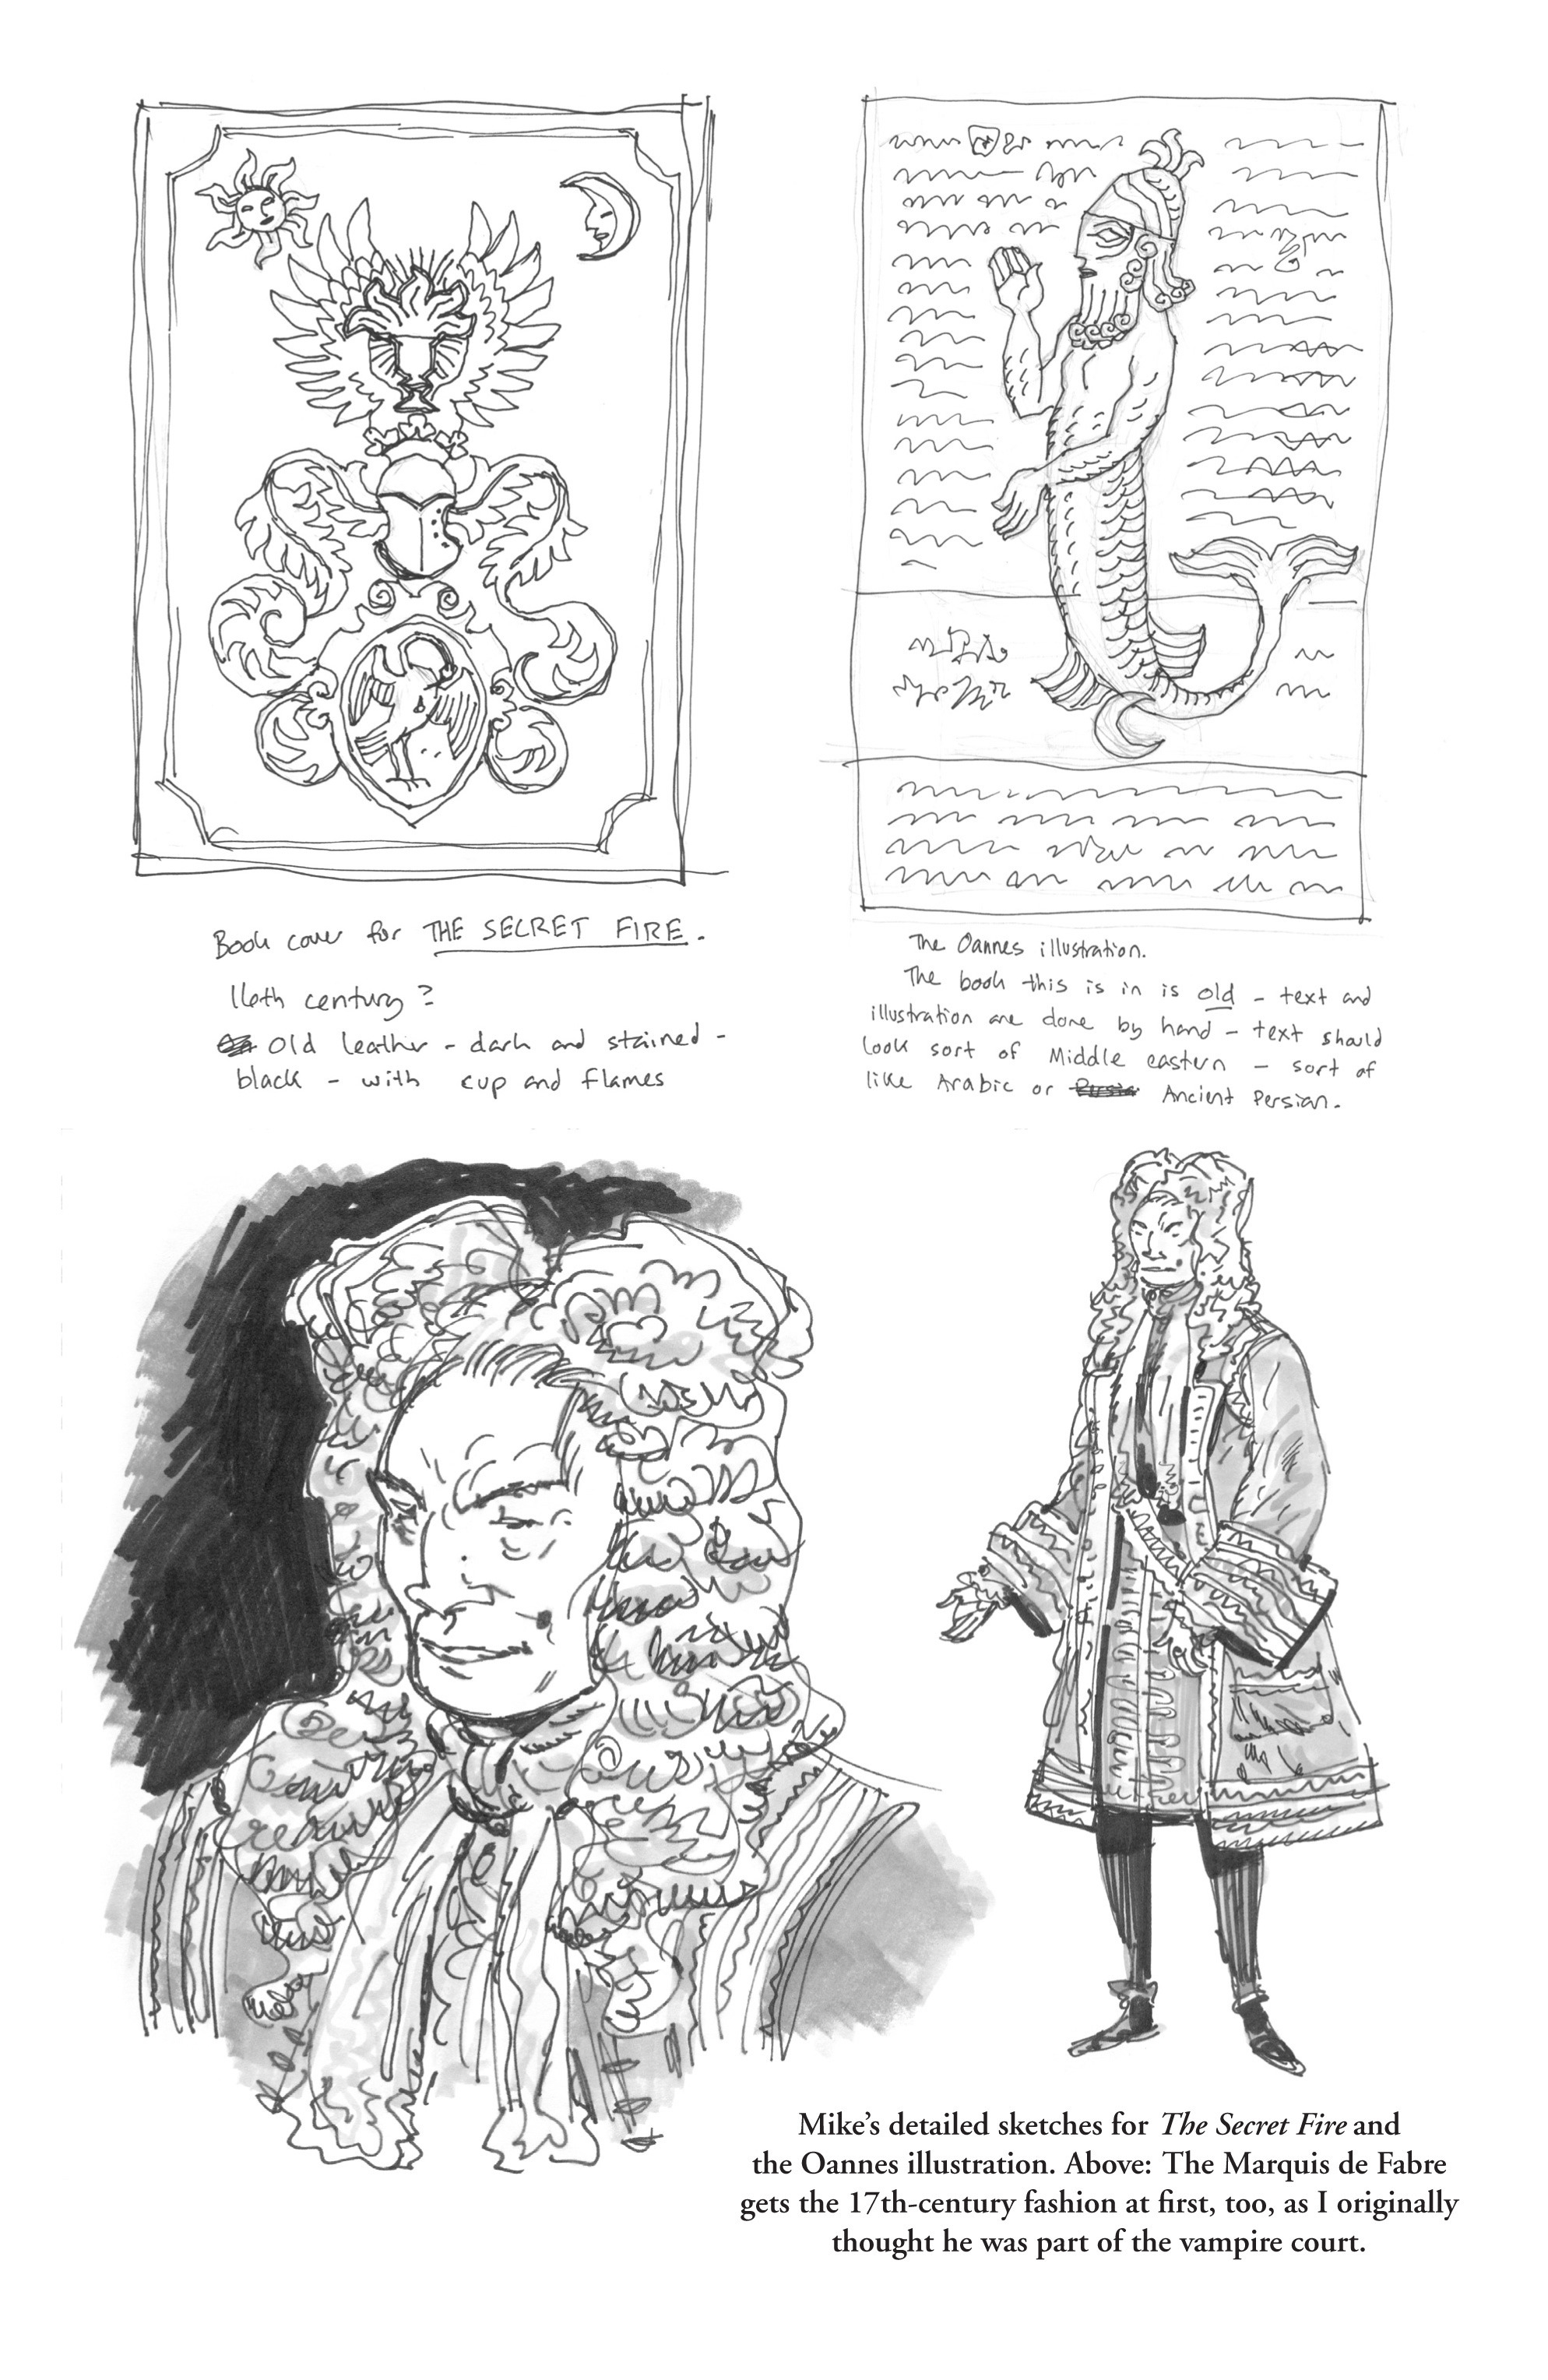 Book cover for THE SECRET FIRE.
16th century?
Old leather - dark and stained -
black - with cup and flames
The Oannes illustration.
The book this is in is old - text and
illustration are done by hand - text should
look sort of Middle eastern - sort of
like Arabic or Ancient Persian.
Mike's detailed sketches for The Secret Fire and
the Oannes illustration. Above: The Marquis de Fabre
gets the 17th-century fashion at first, too, as I originally
thought he was part of the vampire court.